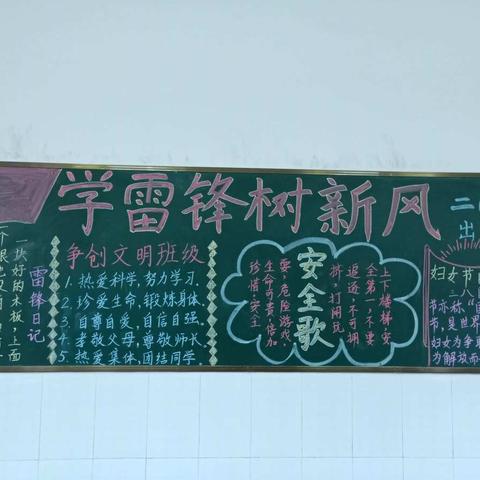 学雷锋树新风
雷锋日记
一块好的木板,上面
争创文明班级
1. 热爱科学,努力学习.
2. 珍爱生命,锻炼身体.
3. 自尊自爱,自信自强.
4. 孝敬父母,尊敬师长.
5. 热爱集体,团结同学.
安全歌
上下楼梯安
全第一,不要
追逐,不可拥
挤,打闹玩
耍,危险游戏
生命可贵,倍加
珍惜,安全
二
出
妇女节
节亦称"国
节,是世界
妇女为争取
为解放而